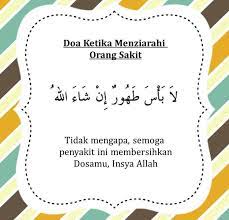 Doa Ketika Menziarahi
Orang Sakit
لاَ بَأْسَ طَهُورٌ إِنْ شَاءَ اللهُ
Tidak mengapa, semoga
penyakit ini membersihkan
Dosamu, Insya Allah